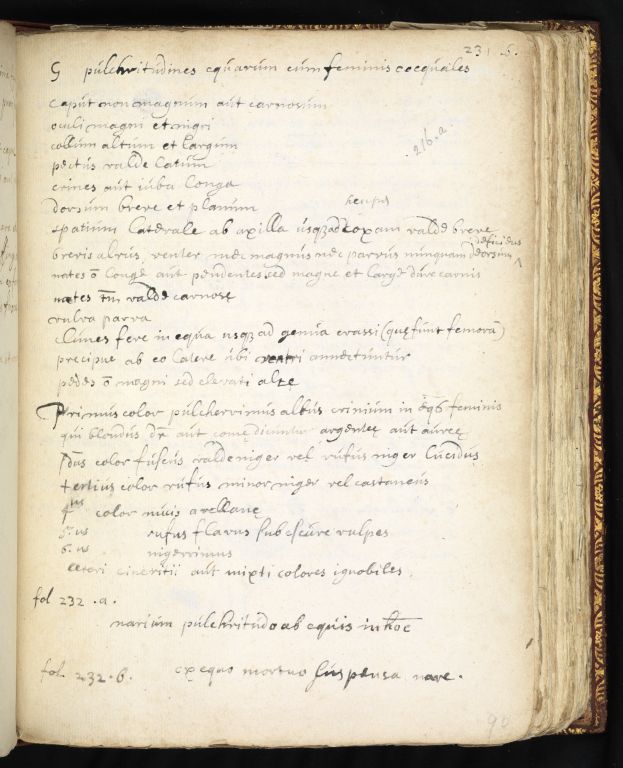 231 . 6 .
S pulchritudines equarum cum feminis coequales
caput non magnum aut carnosum
oculi magni et nigri
collum altum et largum
. 216 . a .
pectus valde latum
crines aut iuba longa
dorsum breve et planum
spatium laterale ab axilla usq ad coxam valde breve
brevis alvus, venter nec magnus nec parvus nunquam deorsum
nates õ longe aut pendentes sed magne et large dure carnis
nates tm valde carnosę
vulva parva
clunes fere in equa usq ad genua crassi (quę sunt femora)
precipue ab eo latere ubi ventri annectuntur
pedes õ magni sed elevati altę
Primus color pulcherrimus albus crinium in eqs feminis
qui blondus dr aut comę dicuntur argenteę aut aureę
2dus color fuscus valde niger vel rufus niger lucidus
tertius color rufus minor niger vel castaneus
4us color nucis avellane
5. us rufus flavus subobscure vulpes
6. us nigerrimus
ceteri cineritii aut mixti colores ignobiles .
fol 232 . a .
narium pulchritudo ab equis in hoĩe
fol. 232 . 6 . ex equo mortuo suspensa nare .
90